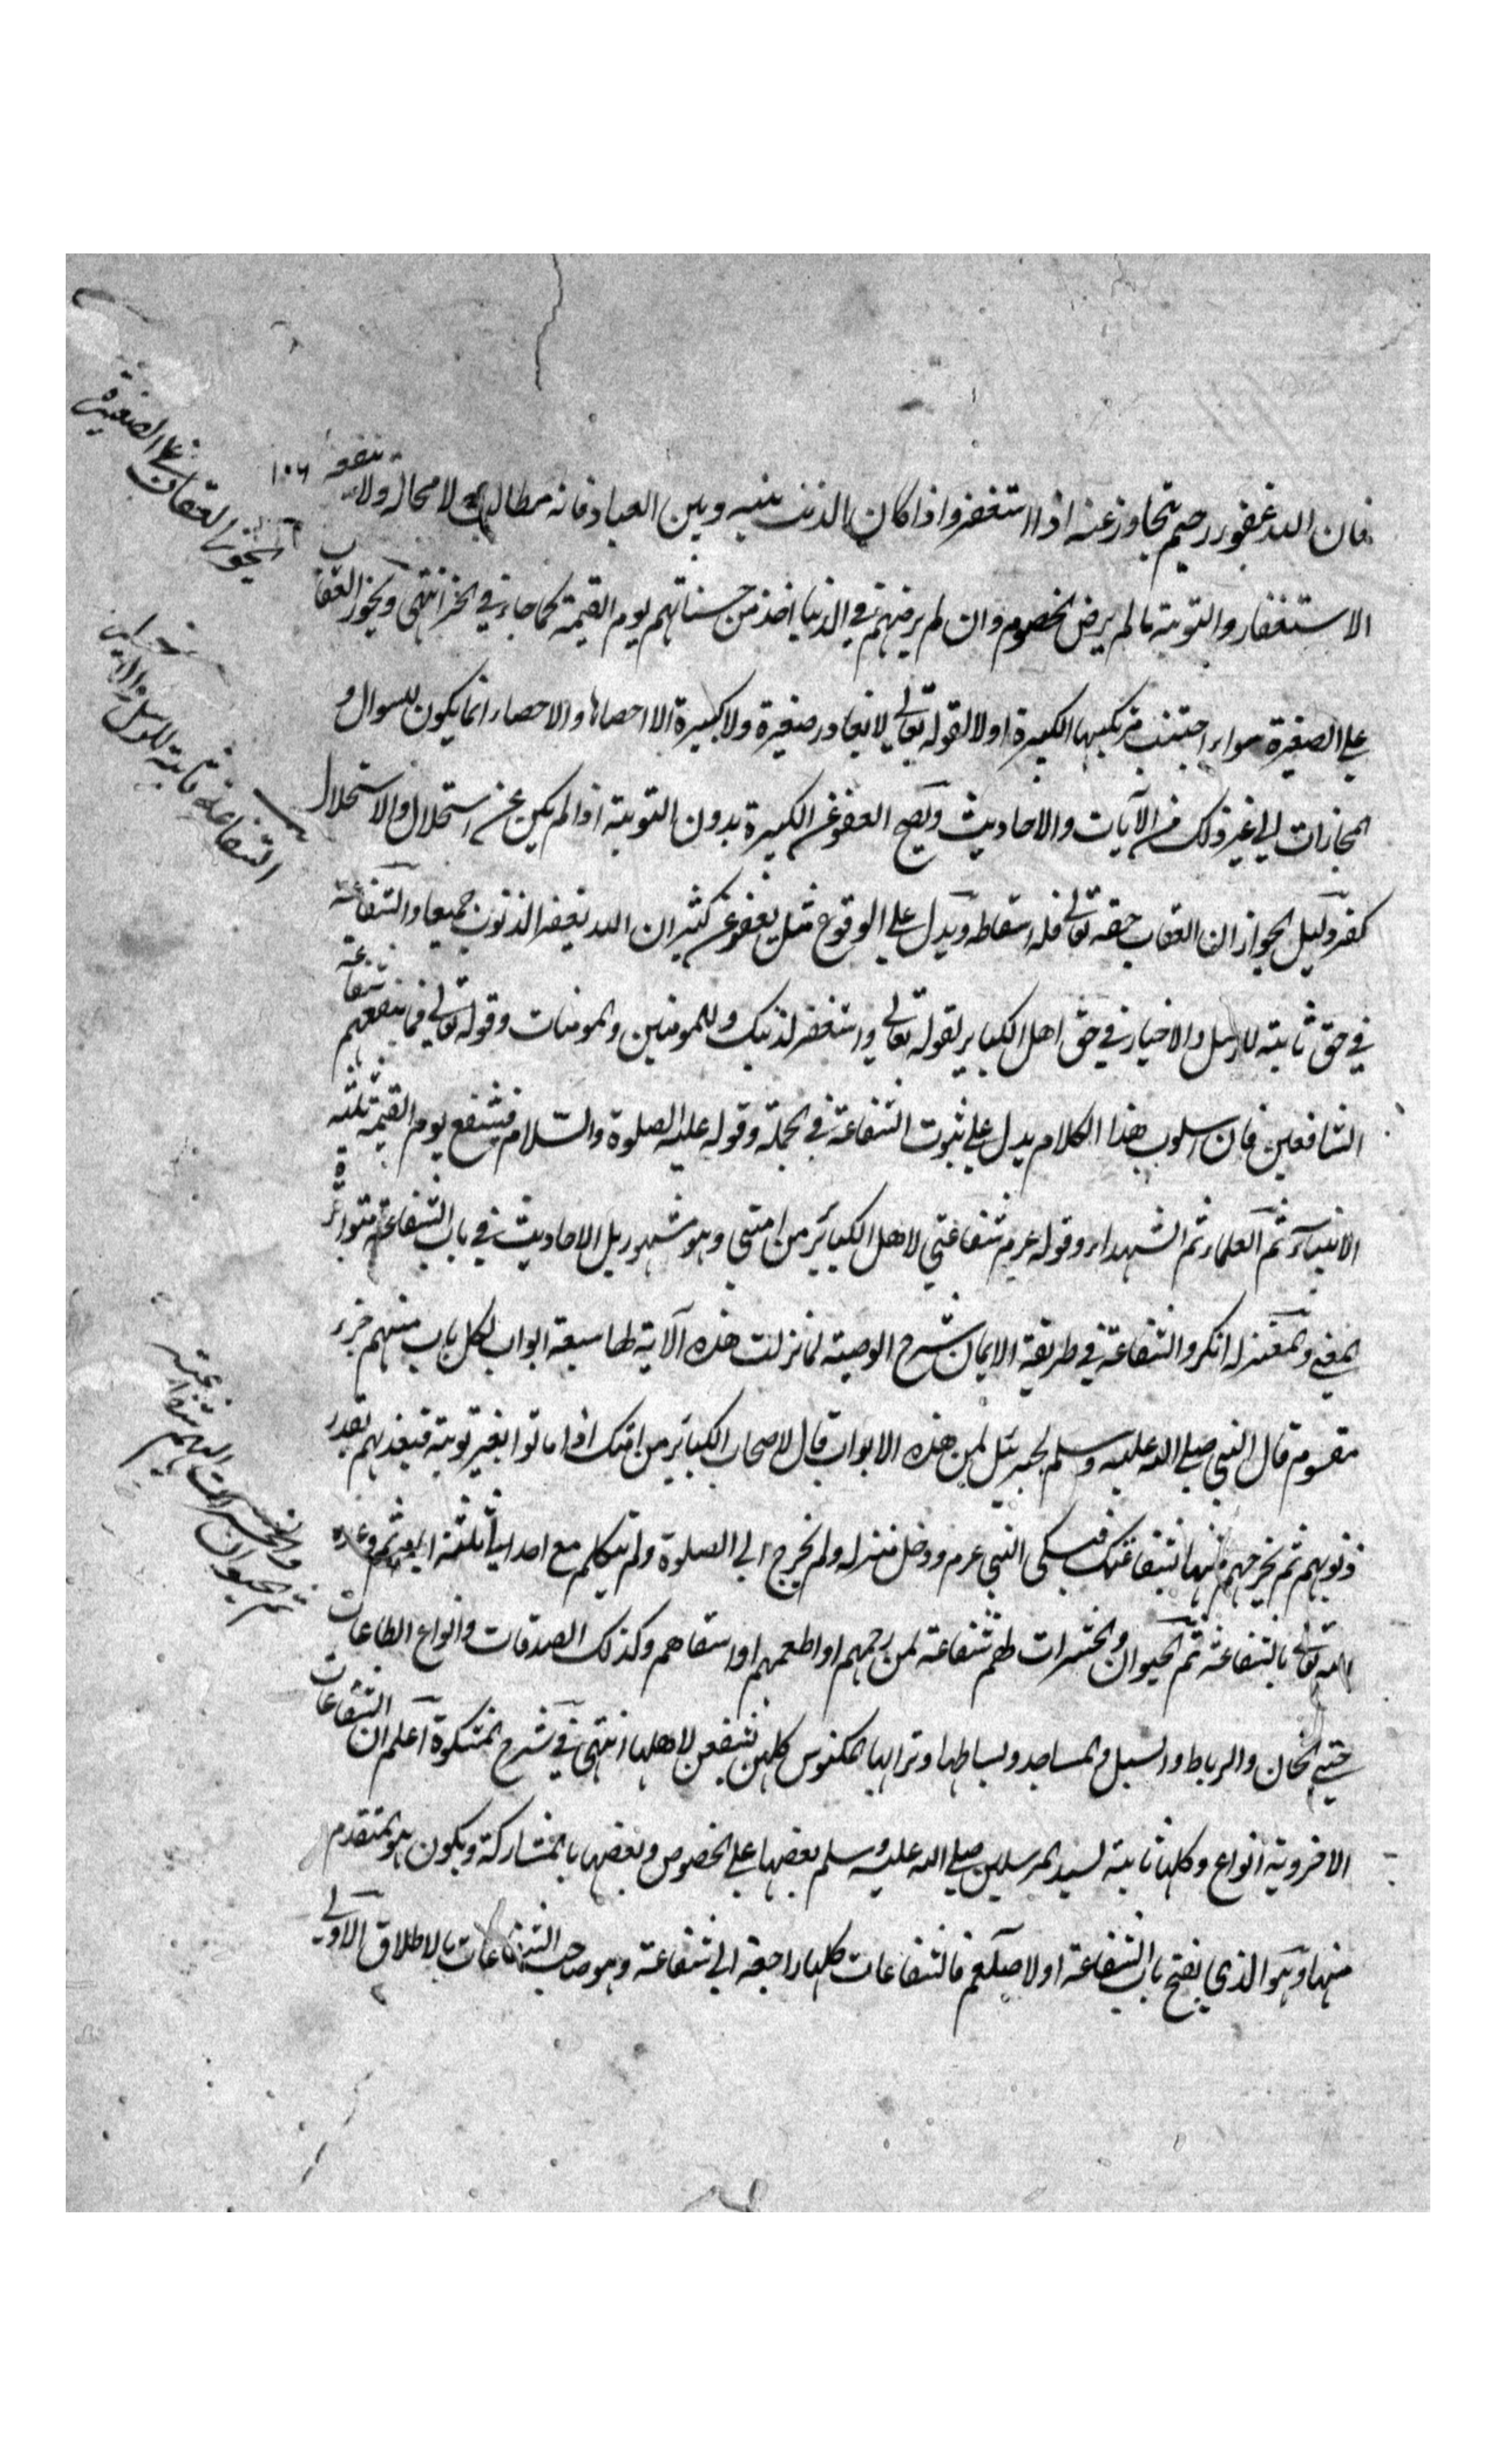 فان الله غفور رحيم يتجاوز عنه اذا استغفر واذا كان الذنب بينه وبين العباد فانه مطالب لا محالة ولا ينفعه
١٠٦
الاستغفار والتوبة ما لم يرض الخصوم وان لم يرضهم في الدنيا اخذ من حسناتهم يوم القيمة كما جاء في الخبر انتهى ويجوز العقاب
على الصغيرة سواء اجتنب مرتكبها الكبيرة او لا لقوله تعالى لا يغادر صغيرة ولا كبيرة الا احصاها والاحصاء انما يكون للسوال و
المجازات الى غير ذلك من الآيات والاحاديث ويصح العفو عن الكبيرة بدون التوبة اذا لم يكن عن استحلال والاستحلال
كفر ودليل الجواز ان العقاب حقه تعالى فله اسقاطه ويدل على الوقوع مثل يعفو عن كثير ان الله يغفر الذنوب جميعا والشفاعة
في حق ثابتة للرسل والاخيار في حق اهل الكبائر لقوله تعالى واستغفر لذنبك وللمومنين والمومنات وقوله تعالى فما تنفعهم شفاعة
الشافعين فان اسلوب هذا الكلام يدل على ثبوت الشفاعة في الجملة وقوله عليه الصلوة والسلام فيشفع يوم القيمة ثلثة
الانبياء ثم العلماء ثم الشهداء وقوله عرم شفاعتي لاهل الكبائر من امتي وهو مشهور بل الاحاديث في باب الشفاعة متواترة
المعنى والمعتزلة انكروا الشفاعة في طريقة الايمان شرح الوصية لما نزلت هذه الآية لها سبعة ابواب لكل باب منهم جزء
مقسوم قال النبي صلى الله عليه وسلم لجبرئيل لمن هذه الابواب قال لاصحاب الكبائر من امتك اذا ماتوا بغير توبة فيعذبهم بقدر
ذنوبهم ثم يخرجهم منها بشفاعتك فبكى النبي عرم ودخل منزله ولم يخرج الى الصلوة ولم يتكلم مع احد ثلثة ايام ثم وعده
الله تعالى بالشفاعة ثم الحيوان والحشرات لهم شفاعة لمن رحمهم او اطعمهم او سقاهم وكذلك الصدقات وانواع الطاعات
حتى الخان والرباط والسبل والمساجد وبساطها وترابها المكنوس كلهن يشفعن لاهلها انتهى في شرح المشكوة اعلم ان الشفاعات
الاخروية انواع وكلها ثابتة لسيد المرسلين صلى الله عليه وسلم بعضها على الخصوص وبعضها بالمشاركة ويكون هو المتقدم
منها وهو الذي يفتح باب الشفاعة اولا صلعم فالشفاعات كلها راجعة الى شفاعته وهو صاحب الشفاعات بالاطلاق الاولى
يجوز العقاب على الصغيرة
الشفاعة ثابتة للرسل والاخيار
ثم الحيوان والحشرات لهم شفاعة